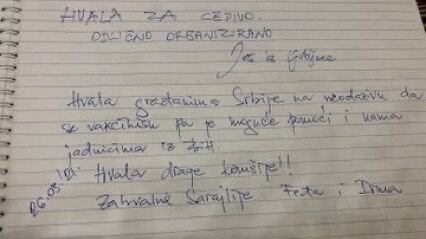 HVALA ZA CEPIVO.
ODLIČNO ORGANIZIRANO
iz Ljubljane
Hvala građanima Srbije na neodzivu da
se vakcinišu pa je moguće pomoći i nama
jadnicima iz BiH.
Hvala drage komšije!!
Zahvalne Sarajlije Feta i Irma
06.05.'21.